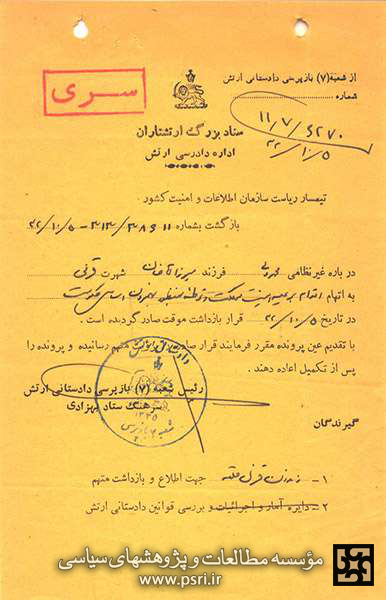 از شعبهٔ (۷) بازپرسی دادستانی ارتش
شماره
۱۱/۷/۶۲۷۰
۴۲/۱۰/۵
سری
ستاد بزرگ ارتشتاران
اداره دادرسی ارتش
تیمسار ریاست سازمان اطلاعات و امنیت کشور .
بازگشت بشماره
۴۲/۱۰/۵
در باره غیرنظامی فرزند شهرت قرنی
به اتهام اقدام بر علیه امنیت مملکت و
در تاریخ ۴۲/۱۰/۵ قرار بازداشت موقت صادر گردیده است .
با تقدیم عین پرونده مقرر فرمایند قرار صادره متهم رسانیده و پرونده را
پس از تکمیل اعاده دهند .
رئیس شعبهٔ (۷) بازپرسی دادستانی ارتش
سرهنگ ستاد بهزادی
گیرندگان
۱- زندان قزل قلعه جهت اطلاع و بازداشت متهم
۲- دایره آمار و اجرائیات و بررسی قوانین دادستانی ارتش
مؤسسه مطالعات و پژوهشهای سیاسی
www.psri.ir